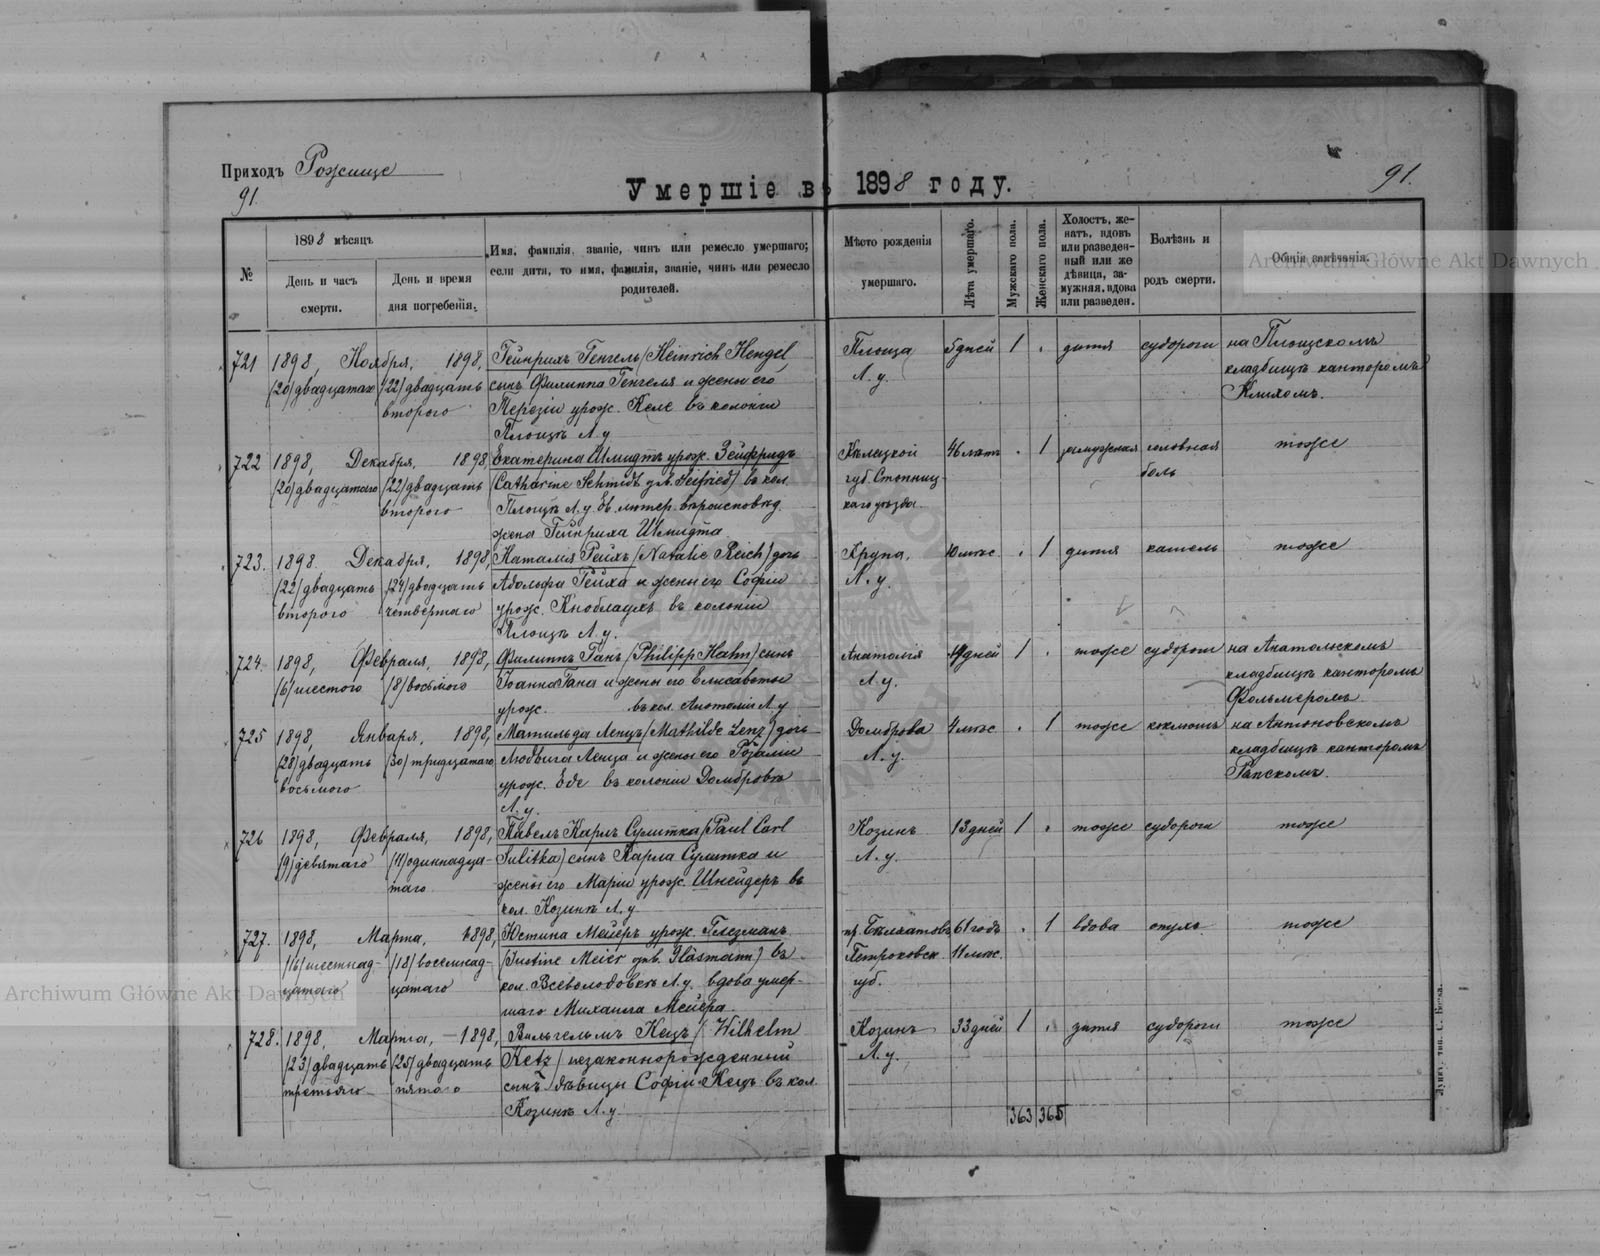 Приходъ Рожище
91
91.
Умершіе въ 1898 году.
№
1898 мѣсяцъ
День и часъ смерти.
День и время дня погребенія.
Имя, фамилія, званіе, чинъ или ремесло умершаго;
если дитя, то имя, фамилія, званіе, чинъ или ремесло
родителей.
Мѣсто рожденія
умершаго.
Лѣта умершаго.
Мужскаго пола.
Женскаго пола.
Холостъ, же-
натъ, вдовъ
или разведен-
ный или же
дѣвица, за-
мужняя, вдова
или разведен.
Болѣзнь и
родъ смерти.
Общія замѣчанія.
Archiwum Główne Akt Dawnych
721 1898, Ноября, 1898, Гейнрихъ Генгель (Heinrich Hengel, Площа 5 дней 1 . дитя судороги на Площскомъ
(20) двадцатаго (22) двадцать сынъ Филиппа Генгеля и жены его Л. у. кладбищѣ канторомъ
второго Терезіи урож. Келе въ колоніи
Площѣ Л. у
722 1898, Декабря, 1898, Екатерина Шмидтъ урож. Зейфридъ Кѣлецкой 46 лѣтъ . 1 замужная головная тоже
(20) двадцатаго (22) двадцать (Catharine Schmidt gb. Seifried) въ кол. губ. Стопниц- боль
второго Площѣ Л. у. Ев. лютер. вѣроисповѣд. каго уѣзда.
жена Гейнриха Шмидта
723. 1898. Декабря, 1898, Наталія Рейхъ (Natalie Reich) дочь Крупа, 10 мѣс . 1 дитя кашель тоже
(22) двадцать (24) двадцать Адольфа Рейха и жены его Софіи Л. у.
второго четвёртаго урож. Кноблаухъ въ колоніи
Площѣ Л. у.
724. 1898, Февраля, 1898, Филиппъ Ганъ (Philipp Hahn) сынъ Анатолія дней 1 . тоже судороги на Анатольскомъ
(6) шестого (8) восьмого Іоанна Гана и жены его Елисаветы Л. у. кладбищѣ канторомъ
урож. въ кол. Анатоліи Л. у Фольмеромъ.
725 1898, Января, 1898, Матильда Ленцъ (Mathilde Lenz) дочь Домброва 4 мѣс . 1 тоже коклюшъ на Антоновскомъ
(28) двадцать (30) тридцатаго Людвига Ленца и жены его Розаліи Л. у. кладбищѣ канторомъ
восьмого урож. Еде въ колоніи Домбровѣ
Л. у.
726 1898, Февраля, 1898, Павелъ Карлъ Сулитка (Paul Carl Козинъ 13 дней 1 . тоже судороги тоже
(9) девятаго (11) одиннадца- Sulitka) сынъ Карла Сулитка и Л. у.
таго жены его Маріи урож. Шнейдеръ въ
кол. Козинѣ Л. у
727. 1898, Марта, 1898, Юстина Мейеръ урож. Глезманъ 61 годъ . 1 вдова опухъ тоже
(16) шестнад- (18) восемнад- (Justine Meier gb. Gläsmann) въ Петроковск. 11 мѣс.
цатаго цатаго кол. Всеволодовкѣ Л. у. вдова умер- губ.
шаго Михаила Мейера
728. 1898, Марта, 1898, Вильгельмъ Кецъ (Wilhelm Козинъ 33 дней 1 . дитя судороги тоже
(23) двадцать (25) двадцать Ketz) незаконнорожденный Л. у.
третьяго пятаго сынъ дѣвицы Софіи Кецъ въ кол.
Козинѣ Л. у.
363 365
Archiwum Główne Akt Dawnych